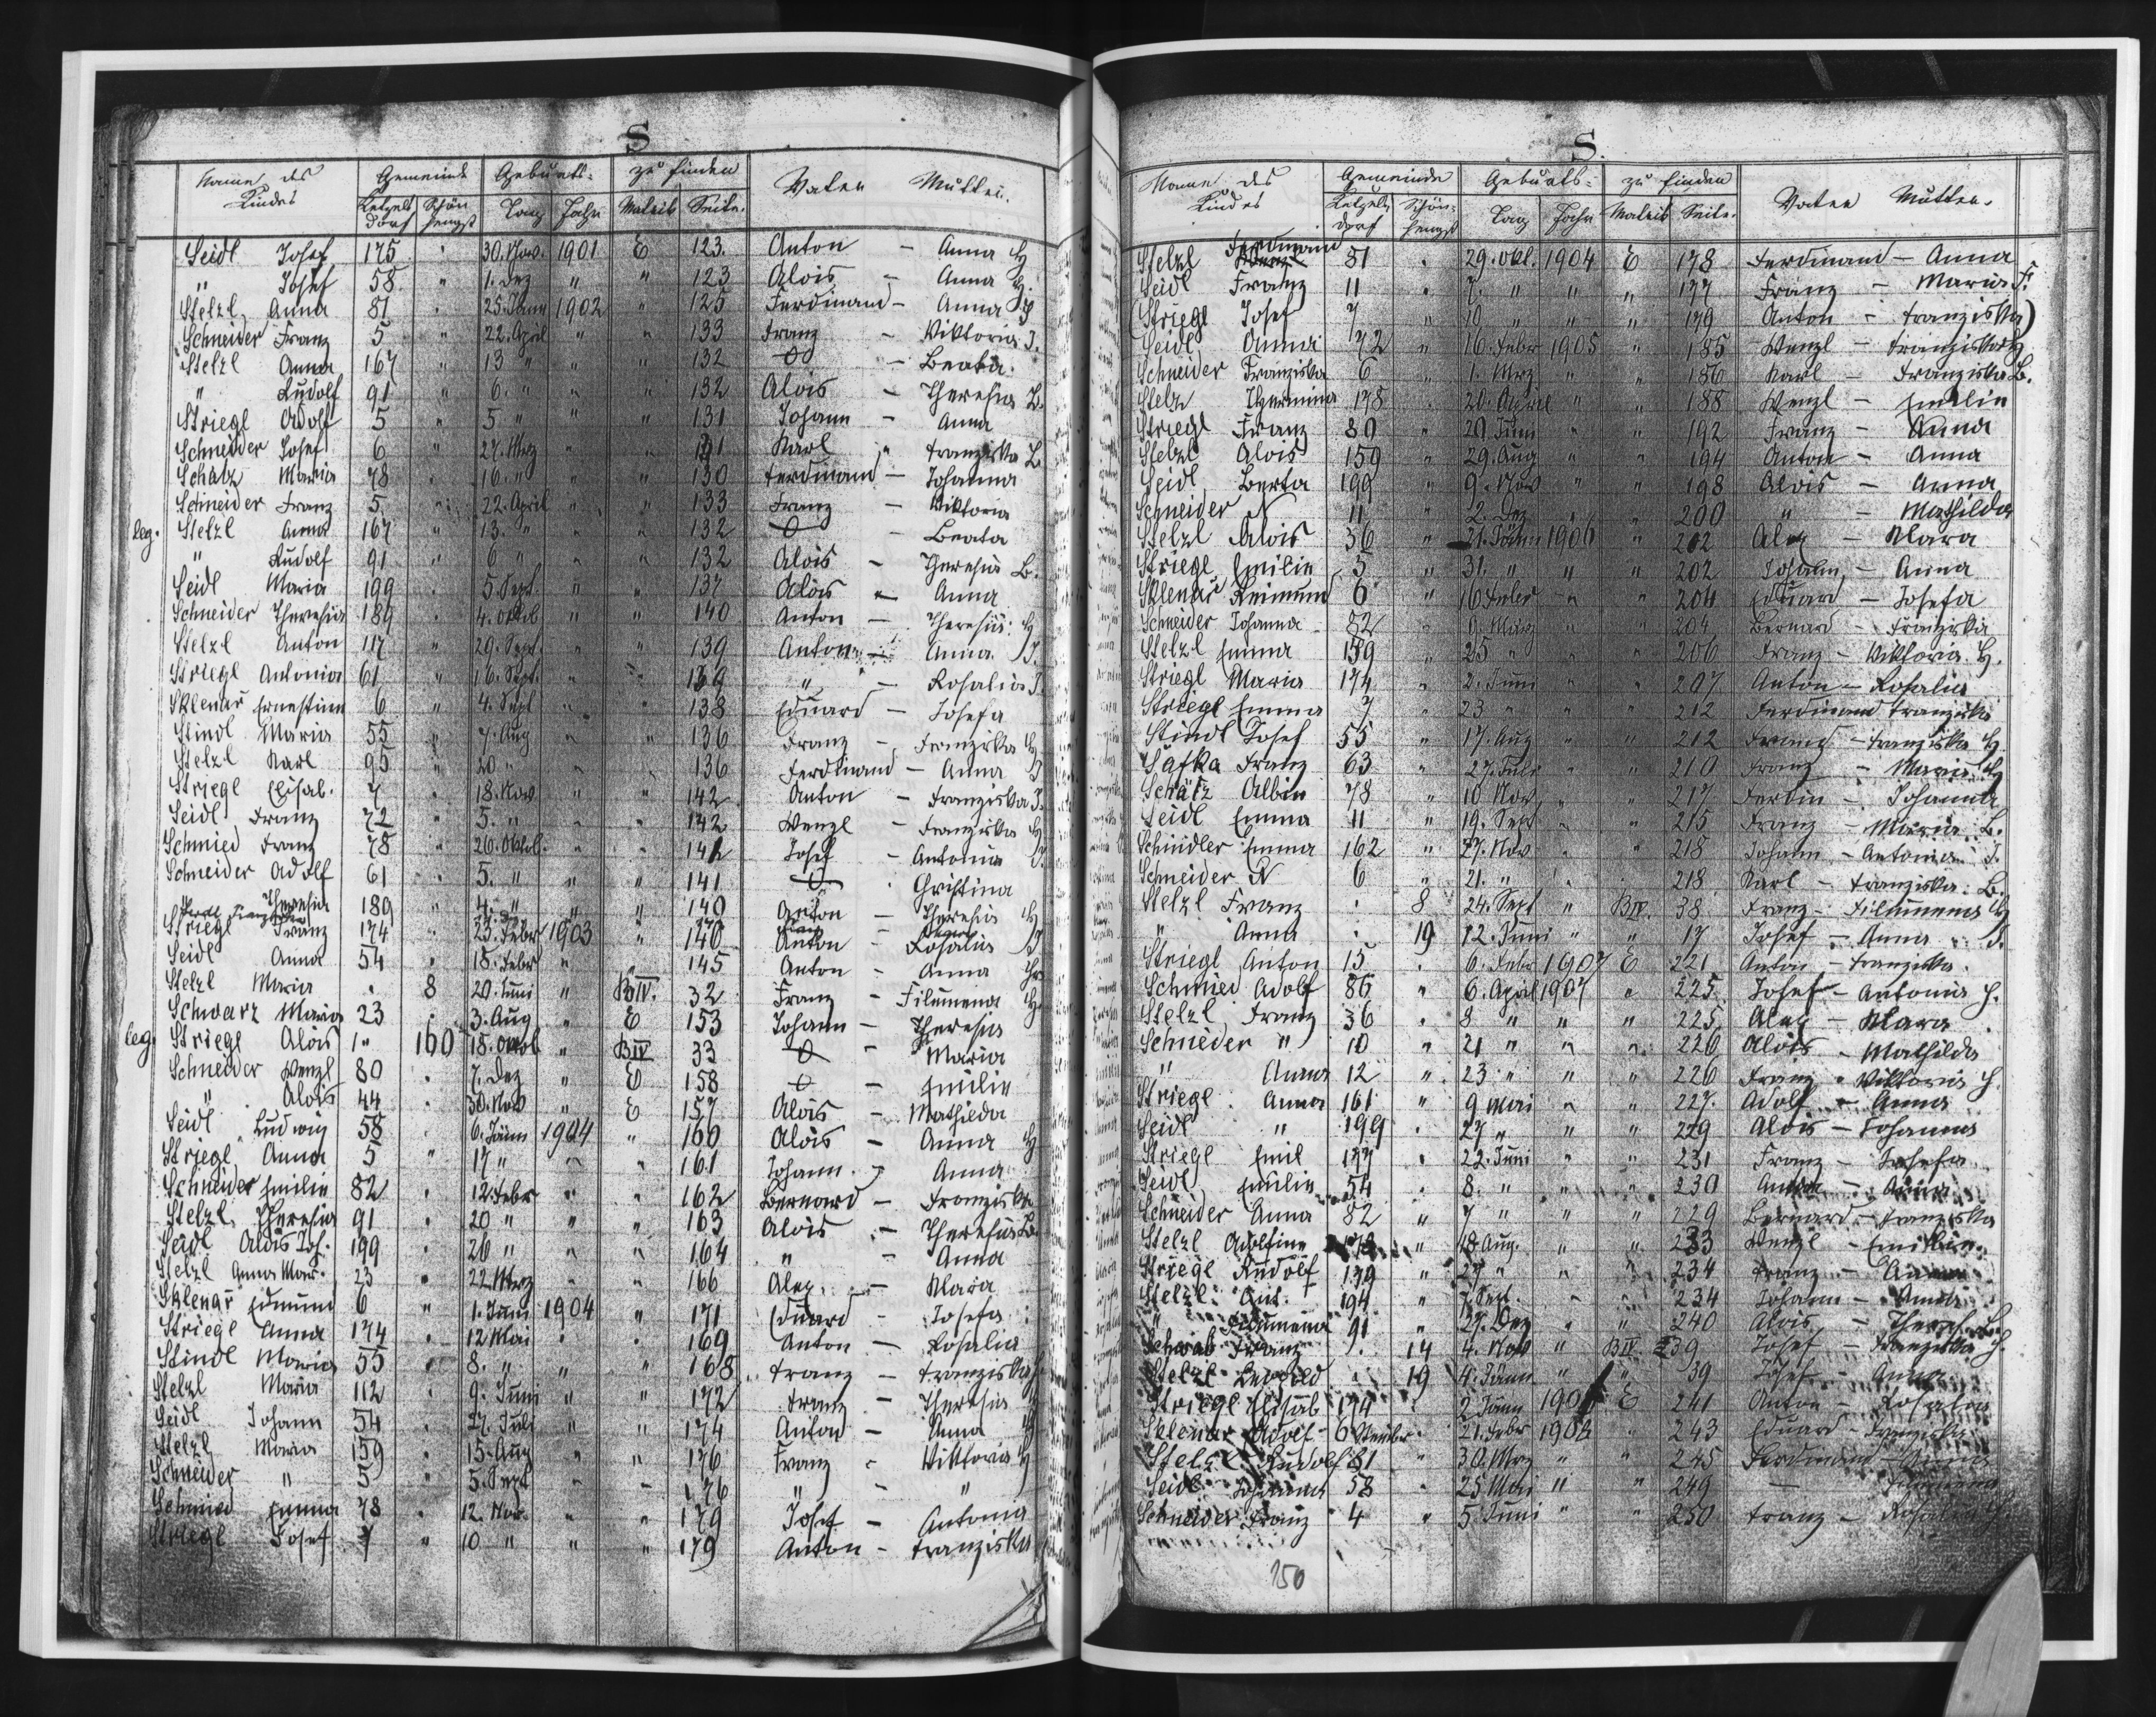 S
Name des Kindes Gemeinde Geburts- zu finden Vater Mutter.
Ketzels dorf Schön hengst Tag Jahr Matrik Seite.
Seidl Josef 175 " 30. Nov. 1901 E 123. Anton - Anna H
" Josef 58 " 1. Dez " " 123 Alois - Anna H.
Stelzl Anna 81 " 25. Jänn 1902 " 125 Ferdinand - Anna H
Schneider Franz 5 " 22. April " " 133 Franz - Viktoria J.
Stelzl Anna 167 " 13 " " " 132 0 - Beata.
" Rudolf 91 " 6. " " " 132 Alois - Theresia B.
Striegl Adolf 5 " 5. " " " 131 Johann - Anna
Schneider Josef 6 " 27. Mrz " " 131 Karl " Franziska B
Schätz Maria 78 " 16. " " " 130 Ferdinand - Johanna
Schneider Franz 5 " 22. April " " 133 Franz - Viktoria
leg. Stelzl Anna 167 " 13. " " " 132 0 - Beata
" Rudolf 91 " 6 " " " 132 Alois - Theresia B.
Seidl Maria 199 " 5. Sept. " " 137 Alois - Anna
Schneider Theresia 189 " 4. Oktob " " 140 Anton - Theresia H
Stelzl Anton 117 " 29. Sept. " " 139 Anton - Anna J.
Striegl Antonia 61 " 16. Sept. " " 139 " - Rosalia J.
Sklenař Ernestine 6 " 4. Sept " " 138 Eduard - Josefa
Stindl Maria 55 " 7. Aug " " 136 Franz - Franziska H
Stelzl Karl 95 " 20 " " " 136 Ferdinand - Anna J
Striegl Elisab. 7 " 18. Nov " " 142 Anton - Franziska J.
Seidl Franz 72 " 5. " " " 142 Wenzl - Franziska H
Schmied Franz 78 " 26. Oktob. " " 142 Josef - Antonia J.
Schneider Adolf 61 " 5. " " " 141 0 - Christina
Theresia 189 " 4. " " " 140 Anton - Theresia H
Striegl Franz 174 " 23. Febr 1903 " 146 Anton - Rosalia J
Seidl Anna 54 " 18. Febr " " 145 Anton - Anna
Stelzl Maria . 8 20. Juni " BIV. 32 Franz - Filumena H.
Schwarz Maria 23 " 3. Aug " E 153 Johann - Theresia
leg. Striegl Alois " 160 18. Oktob " BIV 33 0 - Maria
Schneider Wenzl 80 " 7. Dez " E 158 0 - Emilie
" Alois 44 " 30. Nov " E 157 Alois - Mathilda
Seidl Ludwig 58 " 6. Jänn 1904 " 160 Alois - Anna H
Striegl Anna 5 " 17 " " " 161 Johann - Anna
Schneider Emilie 82 " 12. Febr " " 162 Bernard - Franziska
Stelzl Theresia 91 " 20 " " " 163 Alois - Theresia B.
Seidl Alois Joh. 199 " 26 " " " 164 " - Anna
Stelzl Anna Mar. 23 " 22. Mrz " " 166 Alex. - Klara
Sklenař Edmund 6 " 1. Juni 1904 " 171 Eduard - Josefa
Striegl Anna 174 " 12 Mai " " 169 Anton - Rosalia
Stindl Maria 55 " 8. " " " 168 Franz - Franziska
Stelzl Maria 112 " 9. Juni " " 172 Franz - Theresia
Seidl Johann 54 " 27. Juli " " 174 Anton - Anna H
Stelzl Maria 159 " 15. Aug " " 176 Franz - Viktoria H
Schneider " 5 " 5. Sept " " 176 " - "
Schmied Emma 78 " 12. Nov. " " 179 Josef - Antonia
Striegl Josef 7 " 10 " " " 179 Anton - Franziska
S.
Name des Kindes Gemeinde Geburts- zu finden Vater Mutter.
Ketzels dorf Schön- hengst Tag Jahr Matrik Seite.
Stelzl Ferdinand 81 . 29. Okt. 1904 E 178 Ferdinand - Anna
Seidl Franz 11 " 7. " " " 177 Franz - Maria F.
(Striegl Josef 7 " 10 " " " 179 Anton - Franziska)
Seidl Anna 72 " 16. Febr 1905 " 185 Wenzl - Franziska H
Schneider Franziska 6 " 1. Mrz " " 186 Karl - Franziska B.
Stelz Hermina 178 . 20. April " " 188 Wenzl - Emilie
Striegl Franz 80 " 29 Juni " " 192 Franz - Anna
Stelzl Alois 159 " 29. Aug " " 194 Anton - Anna
Seidl Berta 199 " 9. Nov " " 198 Alois - Anna
Schneider N 11 " 2. Dez " " 200 " - Mathilda
Stelzl Alois 36 " 21. Jänn 1906 " 202 Alex - Klara
Striegl Emilie 5 " 31. " " " 202 Johann - Anna
Sklenař Reimund 6 " 16 Febr " " 204 Eduard - Josefa
Schneider Johanna 82 " März " " 204 Bernard - Franziska
Stelzl Emma 159 " 25 " " " 206 Franz - Viktoria H.
Striegl Maria 174 " 2. Juni " " 207 Anton - Rosalia
Striegl Emma 7 " 23 " " " 212 Ferdinand Franziska
Stindl Josef 55 " 17. Aug " " 212 Franz - Franziska H
Šafka Franz 63 " 27. Juli " " 210 Franz - Maria H
Schätz Albin 78 " 10 Nov " " 217 Ferdin - Johanna
Seidl Emma 11 " 19. Sept " " 215 Franz - Maria B.
Schindler Emma 162 " 27. Nov " " 218 Johann - Antonia J.
Schneider N 6 " 21. " " " 218 Karl - Franziska B.
Stelzl Franz . 8 24. Sept " BIV. 38 Franz - Filumena H
" Anna . 19 12. Juni " " 17 Josef - Anna J.
Striegl Anton 15 . 6. Febr 1907 E 221 Anton - Franziska.
Schmied Adolf 86 " 6. April 1907 " 225 Josef - Antonia H.
Stelzl Franz 36 " 8 " " " 225 Alex - Klara
Schneider " 10 " 21 " " " 226 Alois - Mathilda
" Anna 12 " 23 " " " 226 Franz - Viktoria H.
Striegl Anna 161 " 9 Mai " " 227. Adolf - Anna
Seidl " 199 " 27 " " " 229 Alois - Johanna
Striegl Emil 177 " 22. Juni " " 231 Franz - Josefa
Seidl Emilie 54 " 8. " " " 230 Anton - Anna
Schneider Anna 82 " 7 " " " 229 Bernard - Franziska
Stelzl Adolfine 178 " 18 Aug. " " 233 Wenzl - Emilie
Striegl Rudolf 179 " 27 " " " 234 Franz - Anna
Stelzl Ant. 194 " 7. Sept. " " 234 Johann - Anna
" Filumena 91 " 27. Dez " " 240 Alois - Theres. B.
Schwab Franz . 14 4. Nov " BIV 39 Josef - Franziska H.
Stelzl Leopold . 19 4. Jänn " " 39 Josef - Anna
Striegl Elisab 174 " 2 Jänn 190 E 241 Anton - Rosalia
Sklenař Adolf 6 21. Febr 1908 " 243 Eduard - Franziska
Stelzl Rudolf 81 " 30. Mrz " " 245 Ferdinand - Anna
Seidl Johanna 58 " 25 Mai " " 249 -
Schneider Franz 4 " 5 Juni " " 250 Franz - Rosalia
150